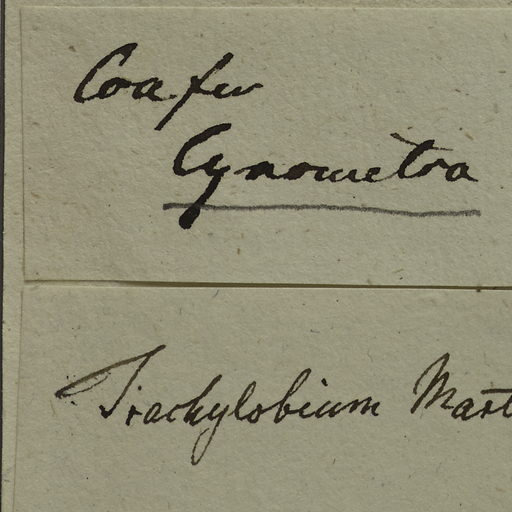 Coa. fu
Cynometra
Trachylobium Mart